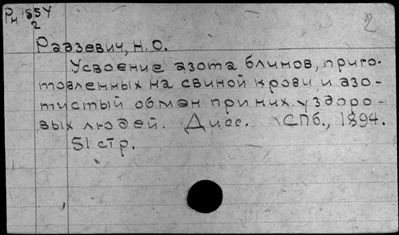 Рн 1554
2
2
Радзевич, Н.О.
Усвоение азота блинов, приго-
товленных на свиной крови и азо-
тистый обмен при них у здоро-
вых людей. Дисс. СПб., 1894.
51 стр.